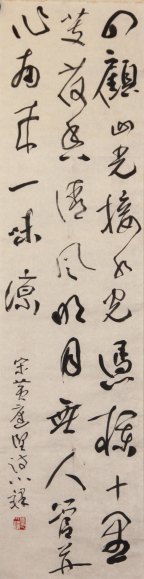 四顧山光接水光憑欄十里
芰荷香清風明月無人管并
作南来一味凉
宋黄庭堅诗